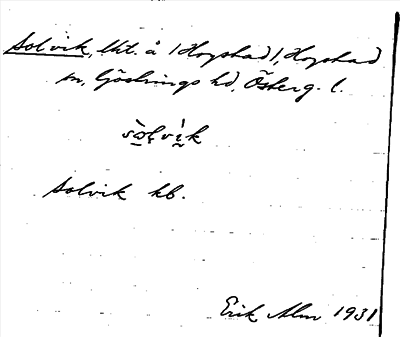 Solvik, lht. å (Hogstad), Hogstad
sn, Göstrings hd, Österg. l.
sò̱lvì̱k
Solvik hb.
Erik Alm 1931